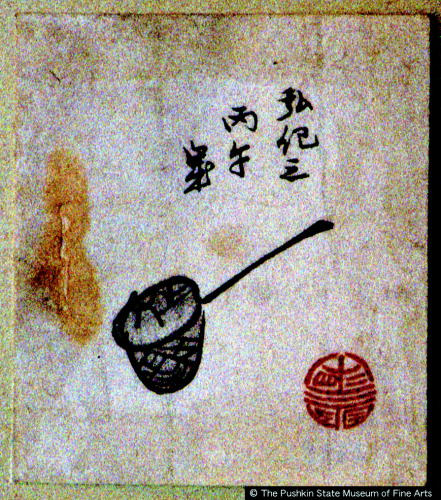 弘化三
丙午
歳
© The Pushkin State Museum of Fine Arts